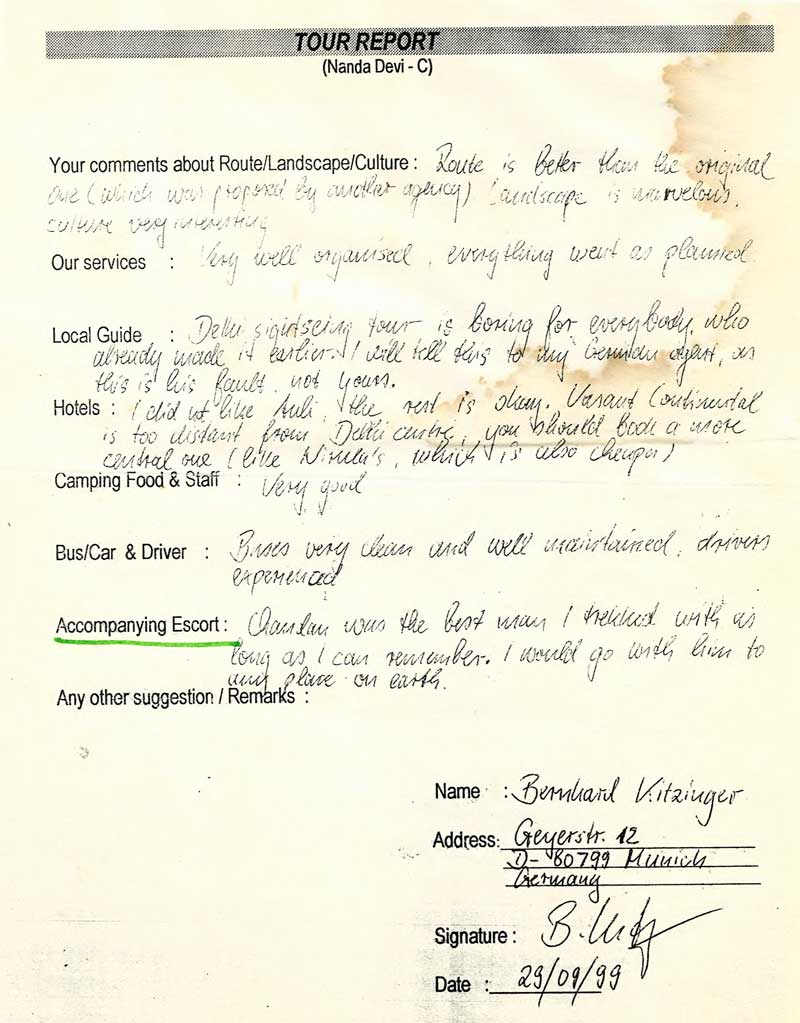 TOUR REPORT
(Nanda Devi - C)
Your comments about Route/Landscape/Culture : Route is better than the original
one (which was proposed by another agency) Landscape is marvelous,
culture very interesting
Our services : Very well organised, everything went as planned
Local Guide : Delhi sightseing tour is boring for everybody, who
already made it earlier. I will tell this to my German agent, as
this is his fault, not yours.
Hotels : I did n't like Auli, the rest is okay. Vasant Continental
is too distant from Delhi centre, you should book a more
central one (like Nirula's, which is also cheaper)
Camping Food & Staff : Very good
Bus/Car & Driver : Buses very clean and well maintained, drivers
experienced
Accompanying Escort : Chandan was the best man I trekked with as
long as I can remember. I would go with him to
any place on earth.
Any other suggestion / Remarks :
Name : Bernhard Kitzinger
Address: Geyerstr. 12
D- 80799 Munich
Germany
Signature :
Date : 29/09/99